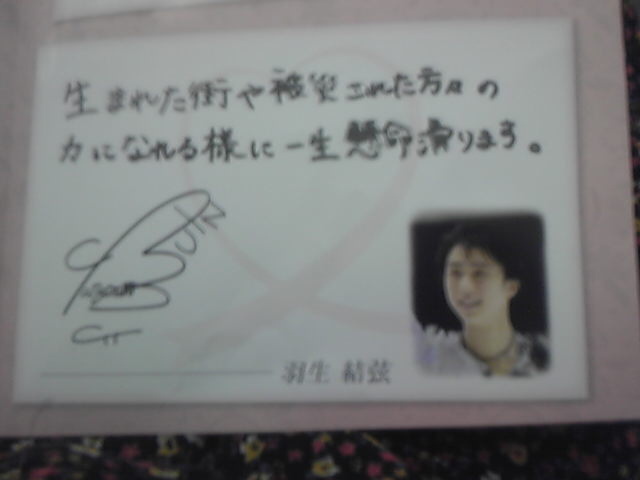 生まれた街や被災された方々の
力になれる様に一生懸命滑ります。
羽生 結弦